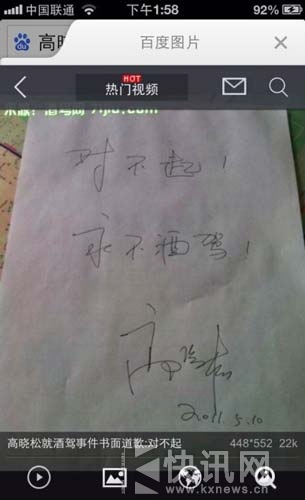 中国联通
下午1:58
92%
du
高晓
百度图片
HOT
热门视频
来源：酒驾网 7jiu.com
对不起！
永不酒驾！
高晓松
2011.5.10
高晓松就酒驾事件书面道歉:对不起
448*552 22k
快讯网
www.kxnews.cn